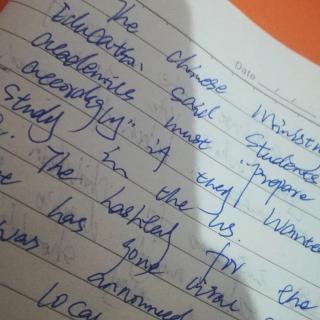 Date
The chinese Ministr
Education said students
academics must "prepare
accordingly" if they wante
study in the us.
The hashtag for the
has gone viral
was announced
local